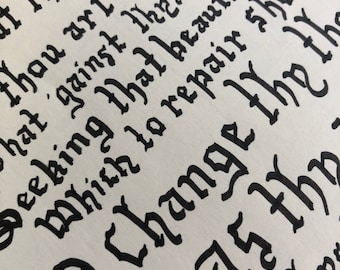 thou art
hat 'gainst thy
Seeking that beau
Which to repair sh
O Change thy th
As thy